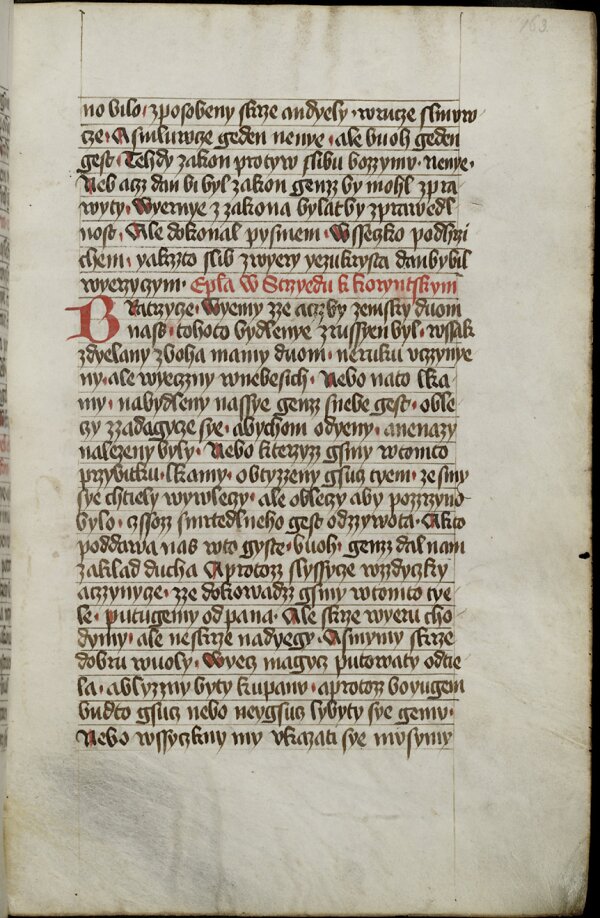 163.
no bilo · zposobeny skrze andyely · wrucze slmyw
cze · A smluwcze geden nenye · ale buoh geden
gest · Tehdy zakon protyw slibu bozzymu · nenye ·
Neb acz dan bi byl zakon genz by mohl zpra
wyty · Wyernye z zakona bylat by zprawedl
nost · Ale dokonal pysmem · Wsseczko podhrzi
chem · yakzto slib z wyery yezukrysta dan by bil
wyerzyczym · Epla W Strzyedu k korintskym
BRatrzye · Wyemy zze acz by zemsky duom
nass · tohoto bydlenye zrussyen byl · wssak
zdyelany z boha mamy duom · ne ruku uczynye
ny · ale wyeczny w nebesich · Nebo nato lka
my · nabydleny nassye genz s nebe gest · oble
czy z zadagycze sye · abychom odyeny · a ne nazy
nalezeny byly · Nebo kterzyz gsmy w tomto
przybitku · lkamy · obtyzzeny gsucz tyem · ze smy
sye chtiely wywleczy · ale obleczy aby pozrzyno
bylo · czssoz smrtedlneho gest od zywota · A kto
poddawa nas w to gyste · buoh · genz dal nam
zaklad ducha A protoz slyssycze wzdyczky
a czynycze · zze dokowadz gsmy w tomto tye
le · putugemy od pana · Ale skrze wyeru cho
dymy · ale ne skrze nadyegy · A smymy skrze
dobru wuoly · Wyecz magycz putowaty od tie
la · a blyzzny byty ku panu · a protoz boyugem
budto gsucz nebo neygsucz lybyty sye gemu ·
Nebo wssyczkny my ukazati sye musymy